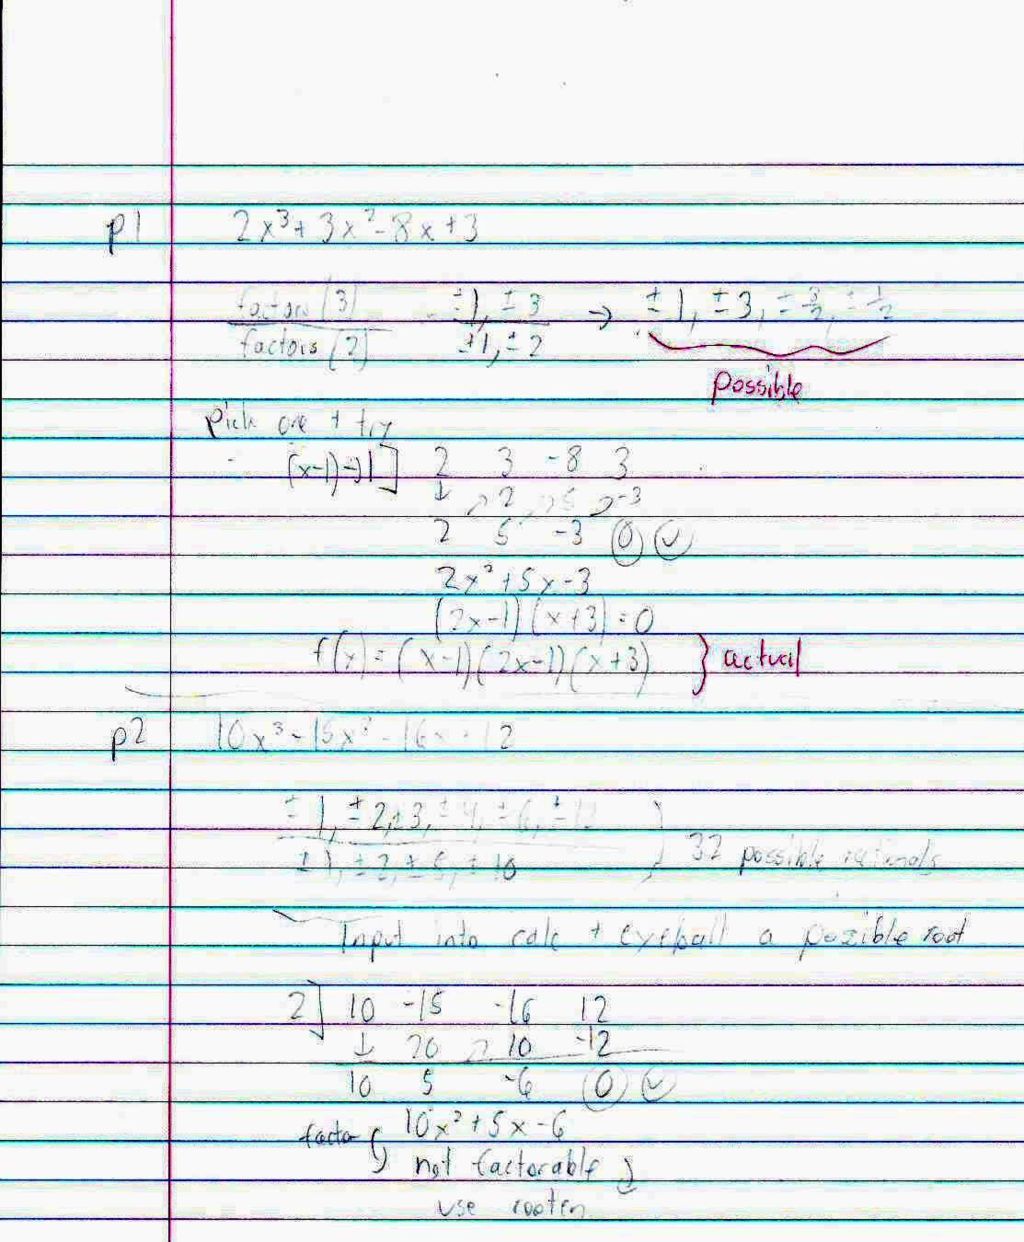 p1 2x³+3x²-8x+3
factors (3) ±1, ±3 → ±1, ±3, ±3/2, ±1/2
factors (2) ±1, ±2
possible
pick one + try
(x-1)→1] 2 3 -8 3
↓ 2 5 -3
2 5 -3 0 ✓
2x²+5x-3
(2x-1)(x+3)=0
f(x)=(x-1)(2x-1)(x+3) } actual
p2 10x³-15x²-16x 12
±1, ±2, ±3, ±4, ±6, ±12
±1, ±2, ±5, ±10 } 32 possible rationals
Input into calc + eyeball a possible root
2] 10 -15 -16 12
↓ 20 10 -12
10 5 -6 0 ✓
10x²+5x-6
factor
not factorable
use